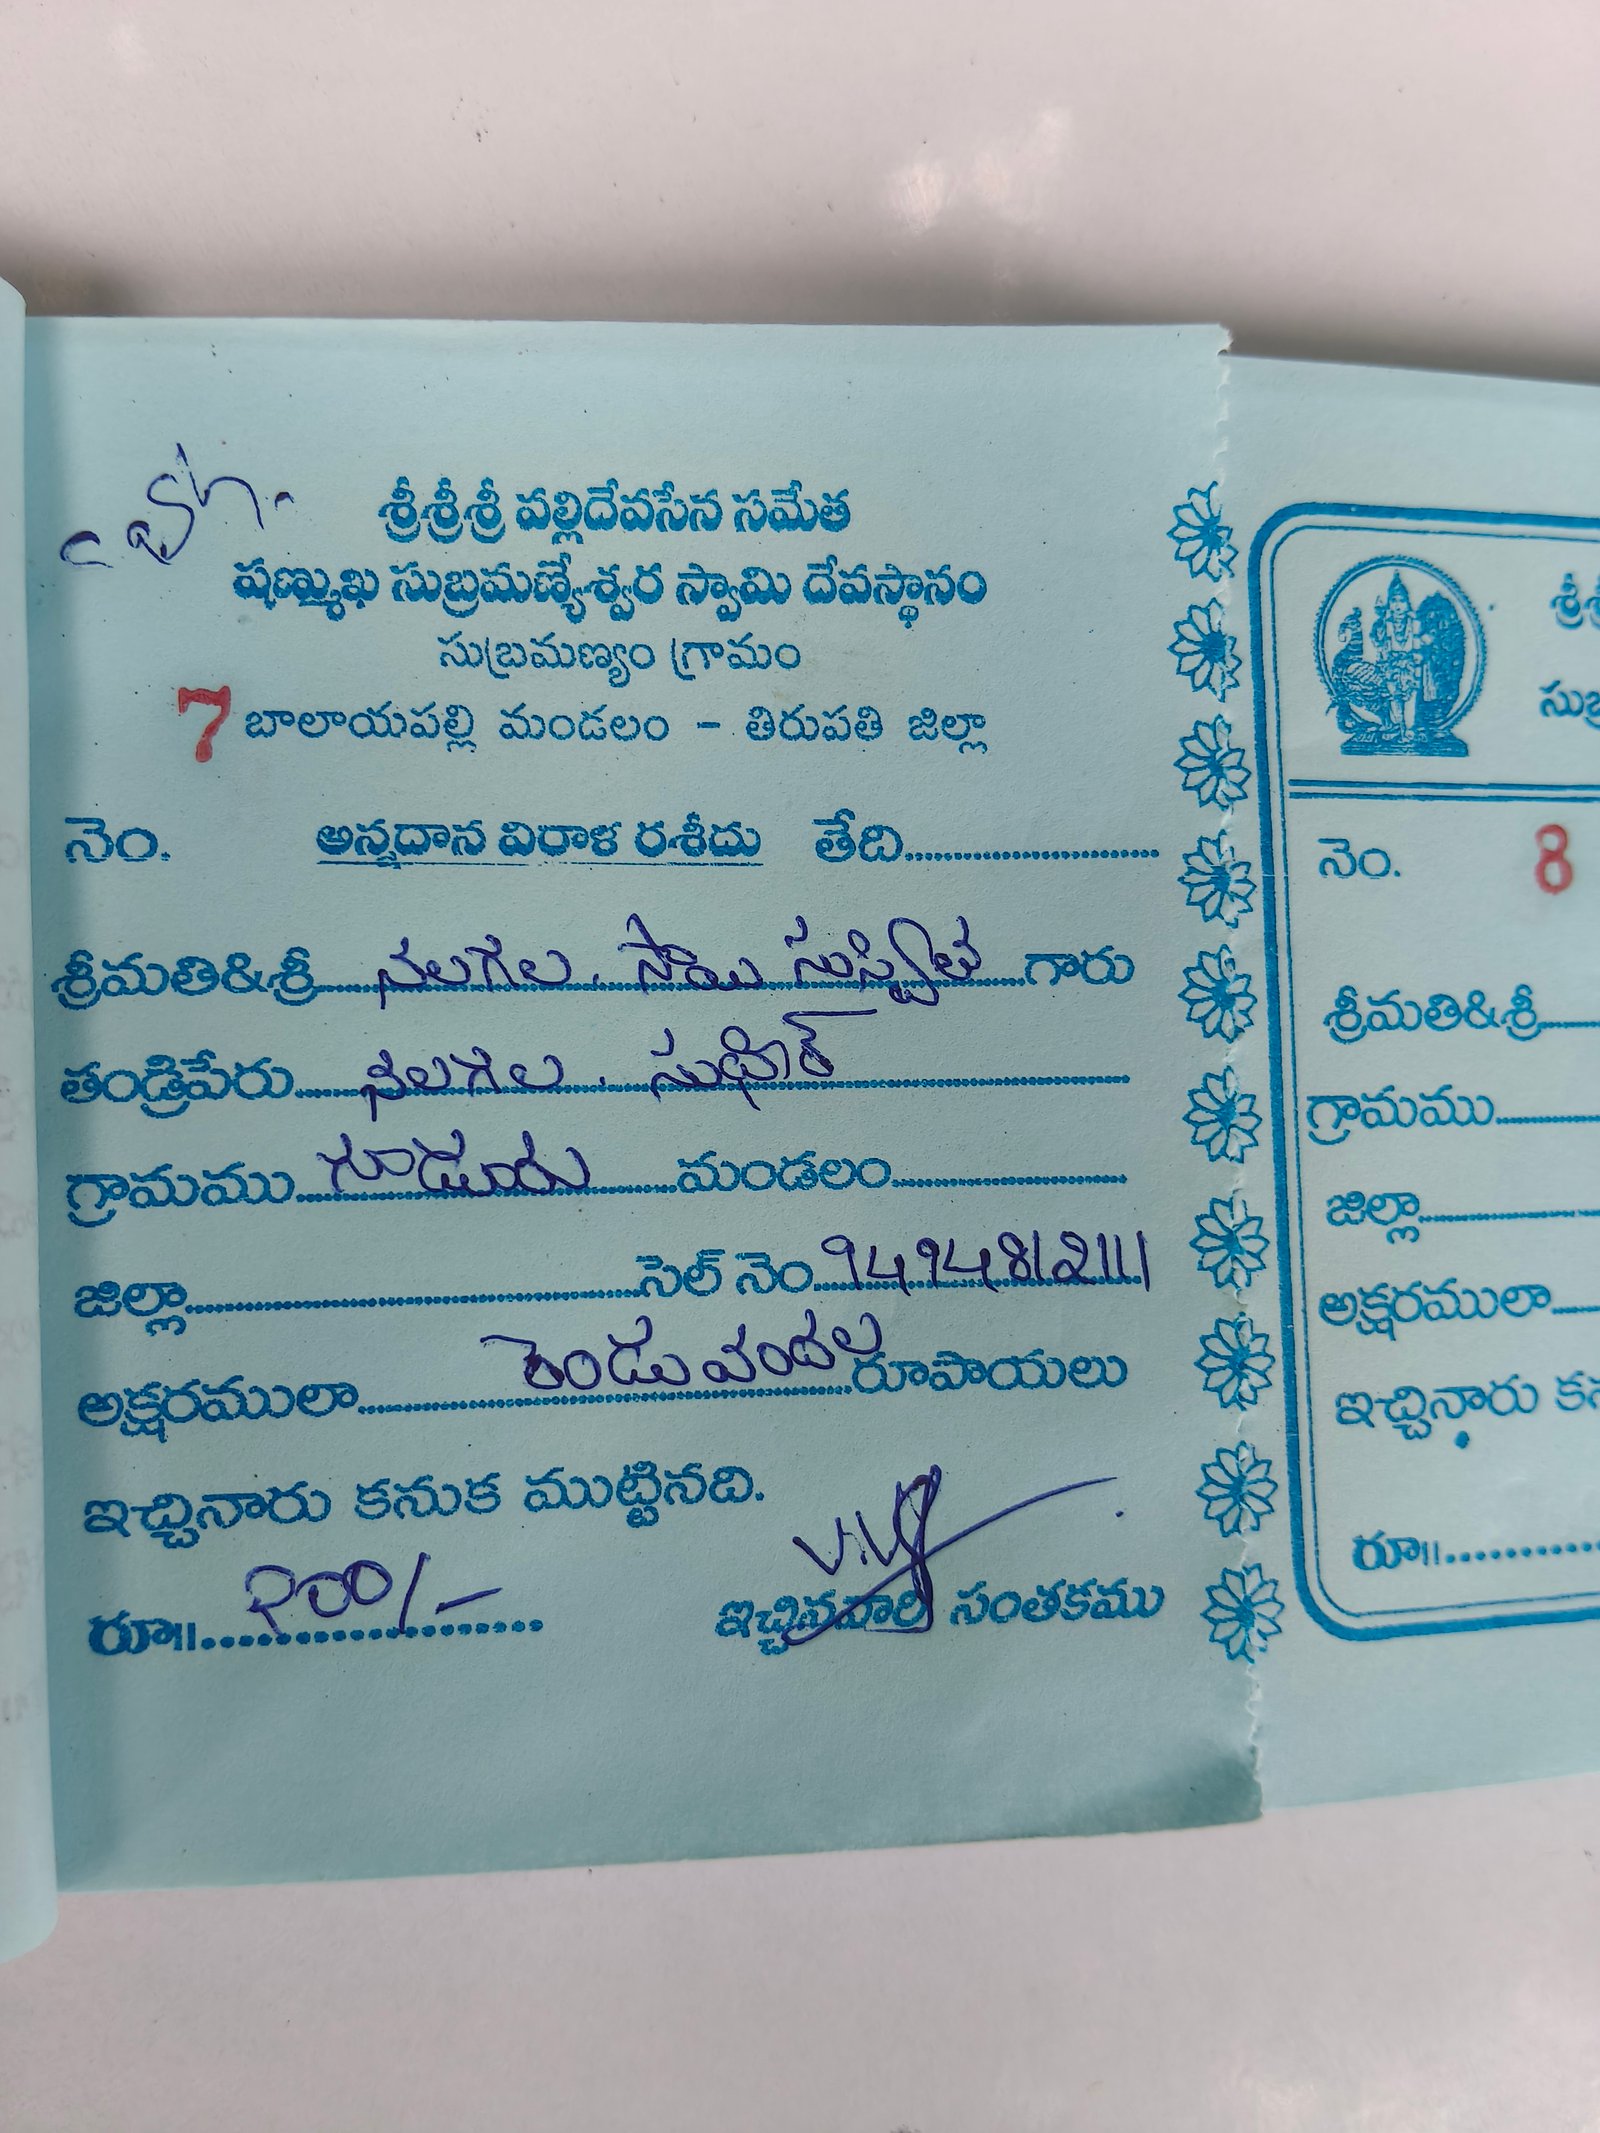 cash.
శ్రీశ్రీశ్రీ వల్లిదేవసేన సమేత
షణ్ముఖ సుబ్రమణ్యేశ్వర స్వామి దేవస్థానం
సుబ్రమణ్యం గ్రామం
7 బాలాయపల్లి మండలం - తిరుపతి జిల్లా
నెం. అన్నదాన విరాళ రశీదు తేది
శ్రీమతి&శ్రీ సాయి గారు
తండ్రిపేరు సుధీర్
గ్రామము గూడురు మండలం
జిల్లా సెల్ నెం 9494812111
అక్షరములా రెండు వందల రూపాయలు
ఇచ్చినారు కనుక ముట్టినది.
రూ॥ 200/- ఇచ్చినవారి సంతకము
శ్రీశ్రీ
సుబ్ర
నెం. 8
శ్రీమతి&శ్రీ
గ్రామము
జిల్లా
అక్షరములా
ఇచ్చినారు కన
రూ॥